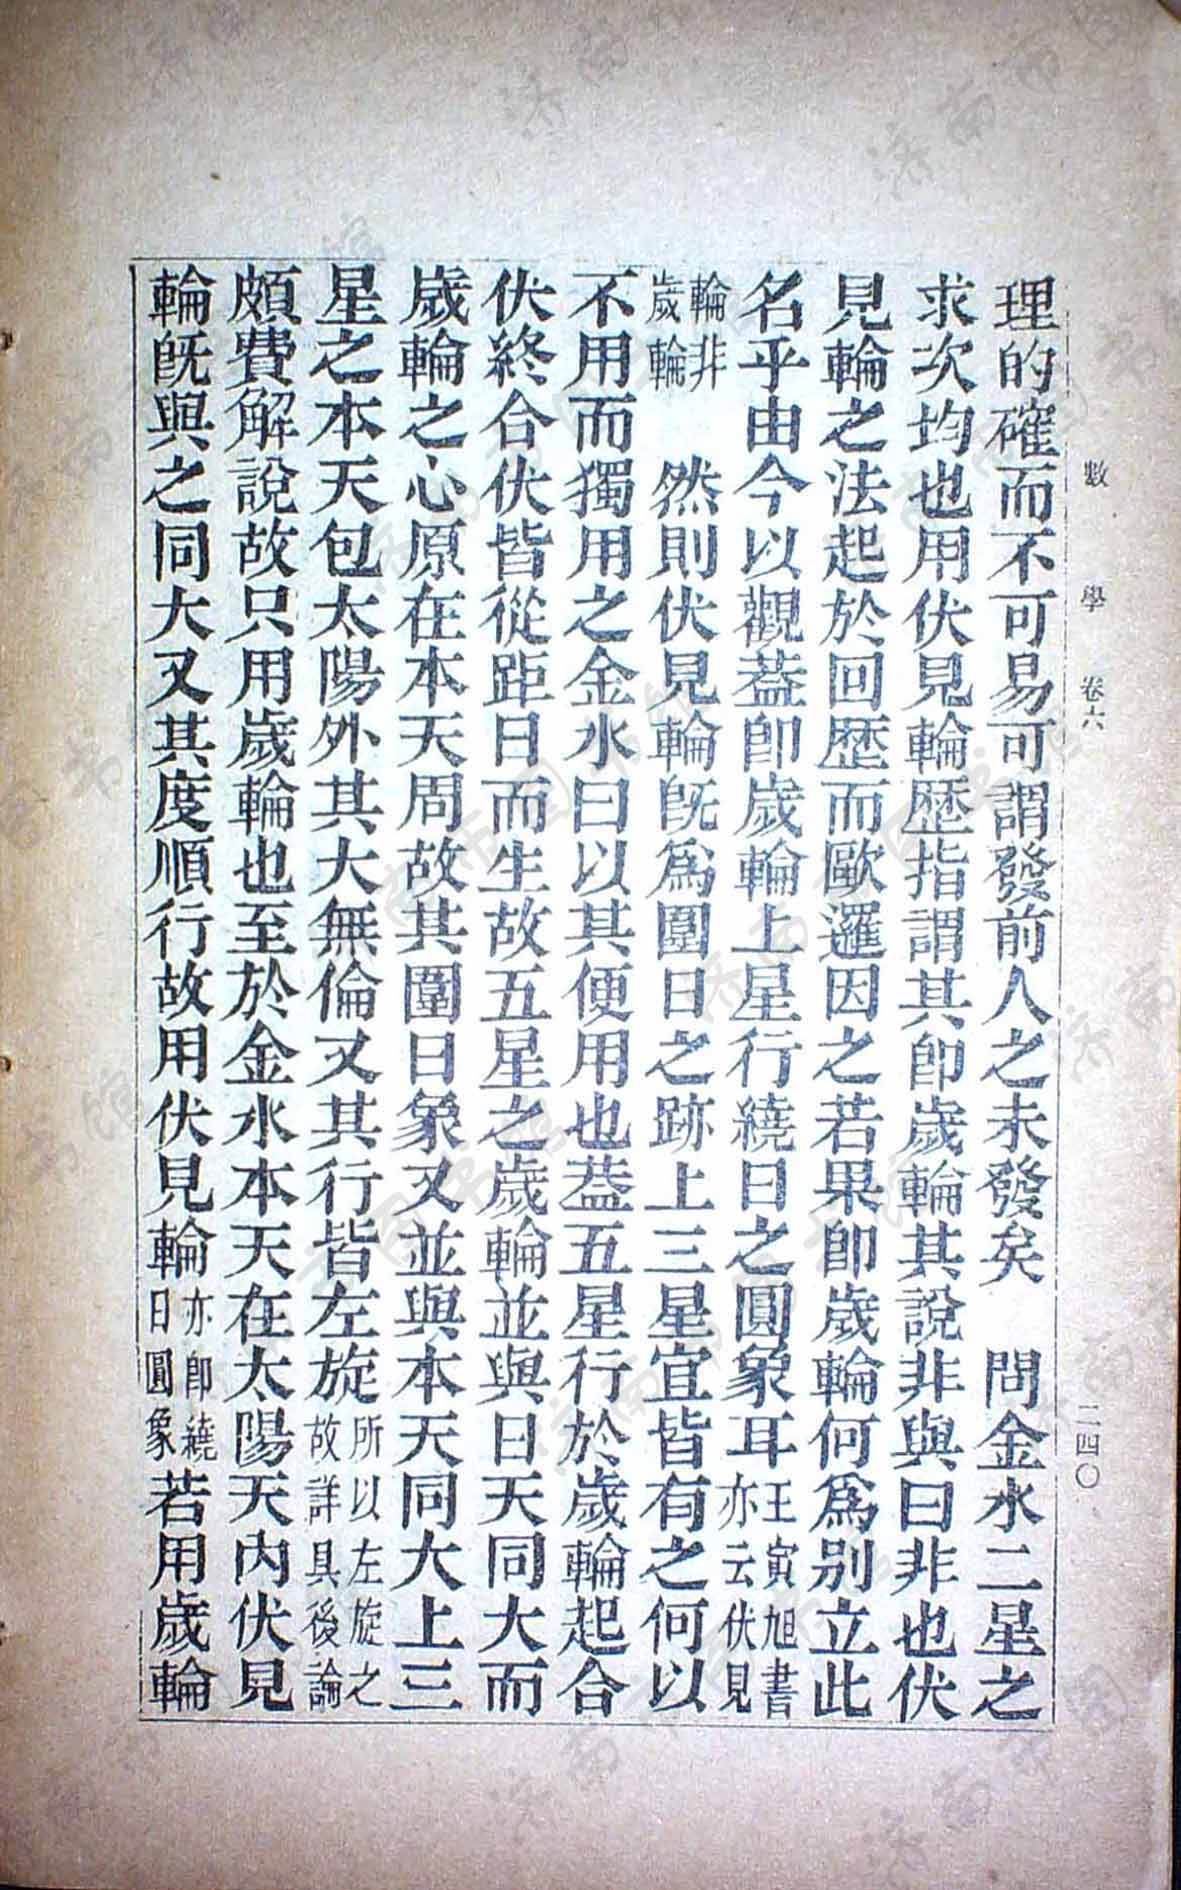 數學 卷六 二四〇
理的確而不可易可謂發前人之未發矣 問金水二星之
求次均也用伏見輪歷指謂其卽歲輪其說非與曰非也伏
見輪之法起於回歷而歐邏因之若果卽歲輪何爲別立此
名乎由今以觀葢卽歲輪上星行繞日之圓象耳王寅旭書亦云伏見
輪非歲輪 然則伏見輪旣爲圍日之跡上三星宜皆有之何以
不用而獨用之金水曰以其便用也葢五星行於歲輪起合
伏終合伏皆從距日而生故五星之歲輪並與日天同大而
歲輪之心原在本天周故其圍日象又並與本天同大上三
星之本天包太陽外其大無倫又其行皆左旋所以左旋之故詳具後論
頗費解說故只用歲輪也至於金水本天在太陽天內伏見
輪旣與之同大又其度順行故用伏見輪亦卽繞日圓象若用歲輪